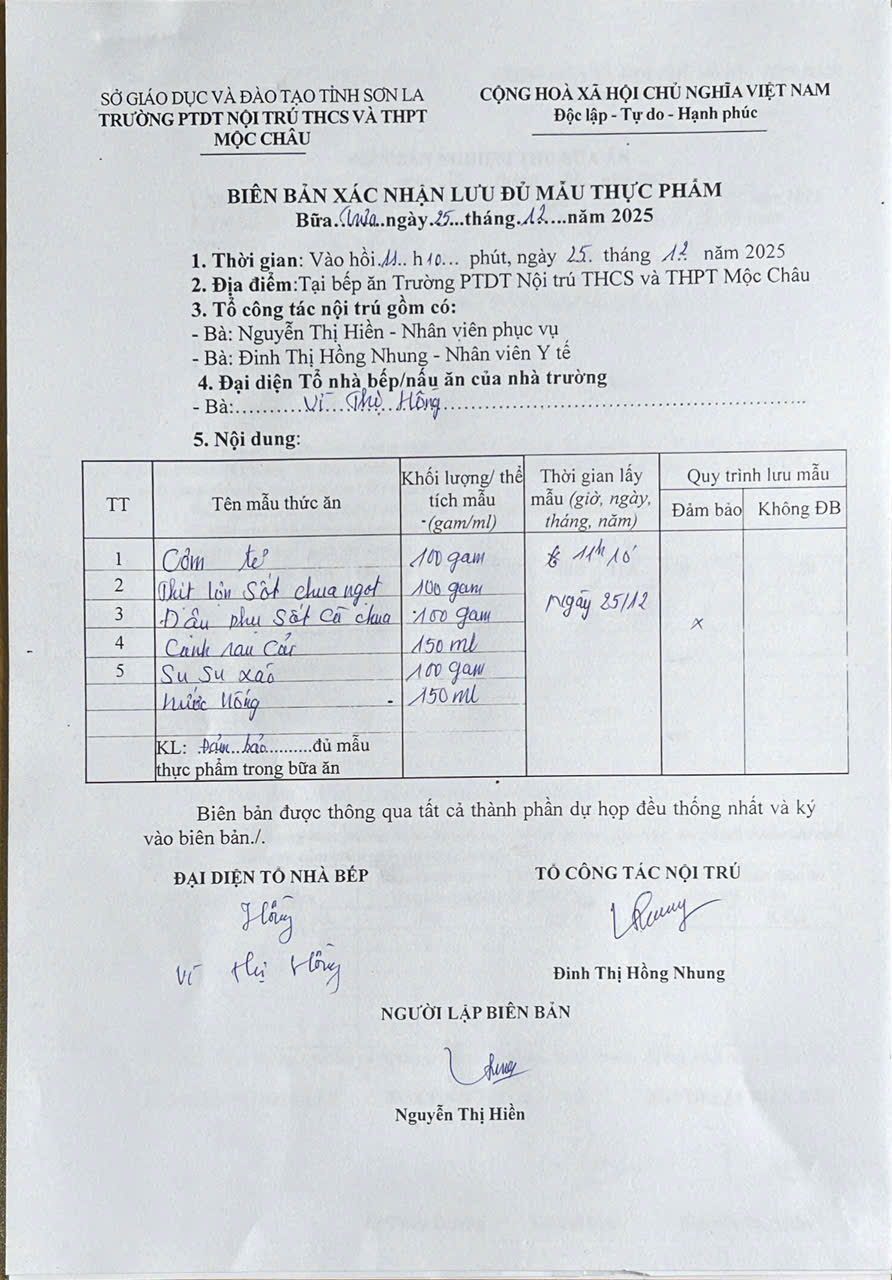 SỞ GIÁO DỤC VÀ ĐÀO TẠO TỈNH SƠN LA
TRƯỜNG PTDT NỘI TRÚ THCS VÀ THPT
MỘC CHÂU
CỘNG HOÀ XÃ HỘI CHỦ NGHĨA VIỆT NAM
Độc lập - Tự do - Hạnh phúc
BIÊN BẢN XÁC NHẬN LƯU ĐỦ MẪU THỰC PHẨM
Bữa.trưa..ngày.25...tháng.12....năm 2025
1. Thời gian: Vào hồi.11.. h10... phút, ngày 25. tháng 12 năm 2025
2. Địa điểm:Tại bếp ăn Trường PTDT Nội trú THCS và THPT Mộc Châu
3. Tổ công tác nội trú gồm có:
- Bà: Nguyễn Thị Hiền - Nhân viên phục vụ
- Bà: Đinh Thị Hồng Nhung - Nhân viên Y tế
4. Đại diện Tổ nhà bếp/nấu ăn của nhà trường
- Bà:..........Vì Thị Hồng..........
5. Nội dung:
TT Tên mẫu thức ăn Khối lượng/ thể tích mẫu (gam/ml) Thời gian lấy mẫu (giờ, ngày, tháng, năm) Quy trình lưu mẫu
Đảm bảo Không ĐB
1 Cơm tẻ 100 gam 11h 10'
2 Thịt lợn sốt chua ngọt 100 gam Ngày 25/12
3 Đậu phụ sốt cà chua 100 gam x
4 Canh rau cải 150 ml
5 Su su xào 100 gam
Nước uống 150 ml
KL: Đảm bảo..........đủ mẫu
thực phẩm trong bữa ăn
Biên bản được thông qua tất cả thành phần dự họp đều thống nhất và ký
vào biên bản./.
ĐẠI DIỆN TỔ NHÀ BẾP
TỔ CÔNG TÁC NỘI TRÚ
Hồng
Nhung
Vì Thị Hồng
Đinh Thị Hồng Nhung
NGƯỜI LẬP BIÊN BẢN
Nguyễn Thị Hiền